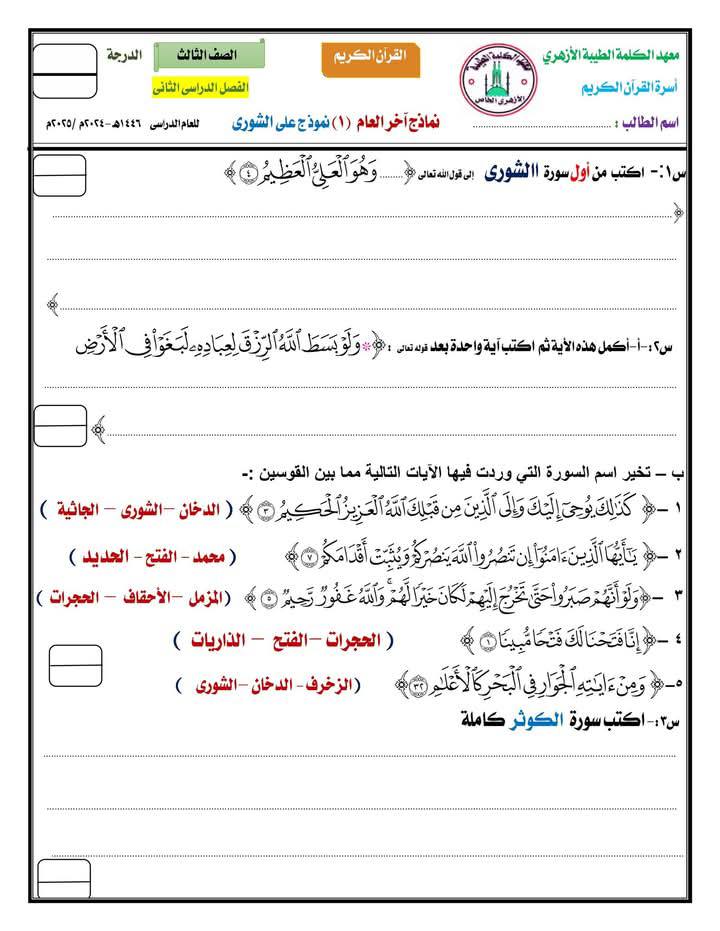 معهد الكلمة الطيبة الأزهري
أسرة القرآن الكريم
اسم الطالب : ........................
القرآن الكريم
الصف الثالث
الدرجة
الفصل الدراسي الثاني
نماذج آخر العام (١) نموذج على الشورى
للعام الدراسي ١٤٤٦هـ-٢٠٢٤م /٢٠٢٥م
س١:- اكتب من أول سورة االشورى إلى قول الله تعالى ﴿........ وَهُوَ ٱلۡعَلِيُّ ٱلۡعَظِيمُ ٤﴾
﴿........................
........................
........................﴾
س٢:-أ-أكمل هذه الأية ثم اكتب آية واحدة بعد قوله تعالى : ﴿* وَلَوۡ بَسَطَ ٱللَّهُ ٱلرِّزۡقَ لِعِبَادِهِۦ لَبَغَوۡاْ فِي ٱلۡأَرۡضِ
........................
........................﴾
ب – تخير اسم السورة التي وردت فيها الآيات التالية مما بين القوسين :-
١ -﴿ كَذَٰلِكَ يُوحِيٓ إِلَيۡكَ وَإِلَى ٱلَّذِينَ مِن قَبۡلِكَ ٱللَّهُ ٱلۡعَزِيزُ ٱلۡحَكِيمُ ٣﴾ ( الدخان –الشورى – الجاثية )
٢ -﴿ يَٰٓأَيُّهَا ٱلَّذِينَ ءَامَنُوٓاْ إِن تَنصُرُواْ ٱللَّهَ يَنصُرۡكُمۡ وَيُثَبِّتۡ أَقۡدَامَكُمۡ ٧﴾ ( محمد - الفتح - الحديد )
٣ -﴿وَلَوۡ أَنَّهُمۡ صَبَرُواْ حَتَّىٰ تَخۡرُجَ إِلَيۡهِمۡ لَكَانَ خَيۡرٗا لَّهُمۡۚ وَٱللَّهُ غَفُورٞ رَّحِيمٞ ٥﴾ (المزمل –الأحقاف – الحجرات )
٤ -﴿إِنَّا فَتَحۡنَا لَكَ فَتۡحٗا مُّبِينٗا ١﴾ ( الحجرات –الفتح – الذاريات )
٥-﴿ وَمِنۡ ءَايَٰتِهِ ٱلۡجَوَارِ فِي ٱلۡبَحۡرِ كَٱلۡأَعۡلَٰمِ ٣٢﴾ (الزخرف- الدخان –الشورى )
س٣:- اكتب سورة الكوثر كاملة
........................
........................
........................